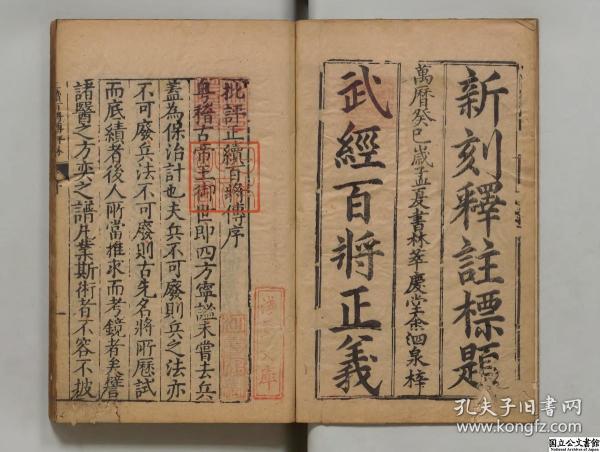 新刻釋註標題
萬曆癸巳歲孟夏書林萃慶堂余泗泉梓
武經百將正義
批評正續百將傳序
粵稽古帝王御世即四方寧謐未嘗去兵
蓋為保治計也夫兵不可廢則兵之法亦
不可廢兵法不可廢則古先名將所歷試
而底績者後人所當推求而考鏡者矣譬
諸醫之方奕之譜凡業斯術者不容不披
孔夫子旧书网
www.kongfz.com
国立公文書館
National Archives of Japan